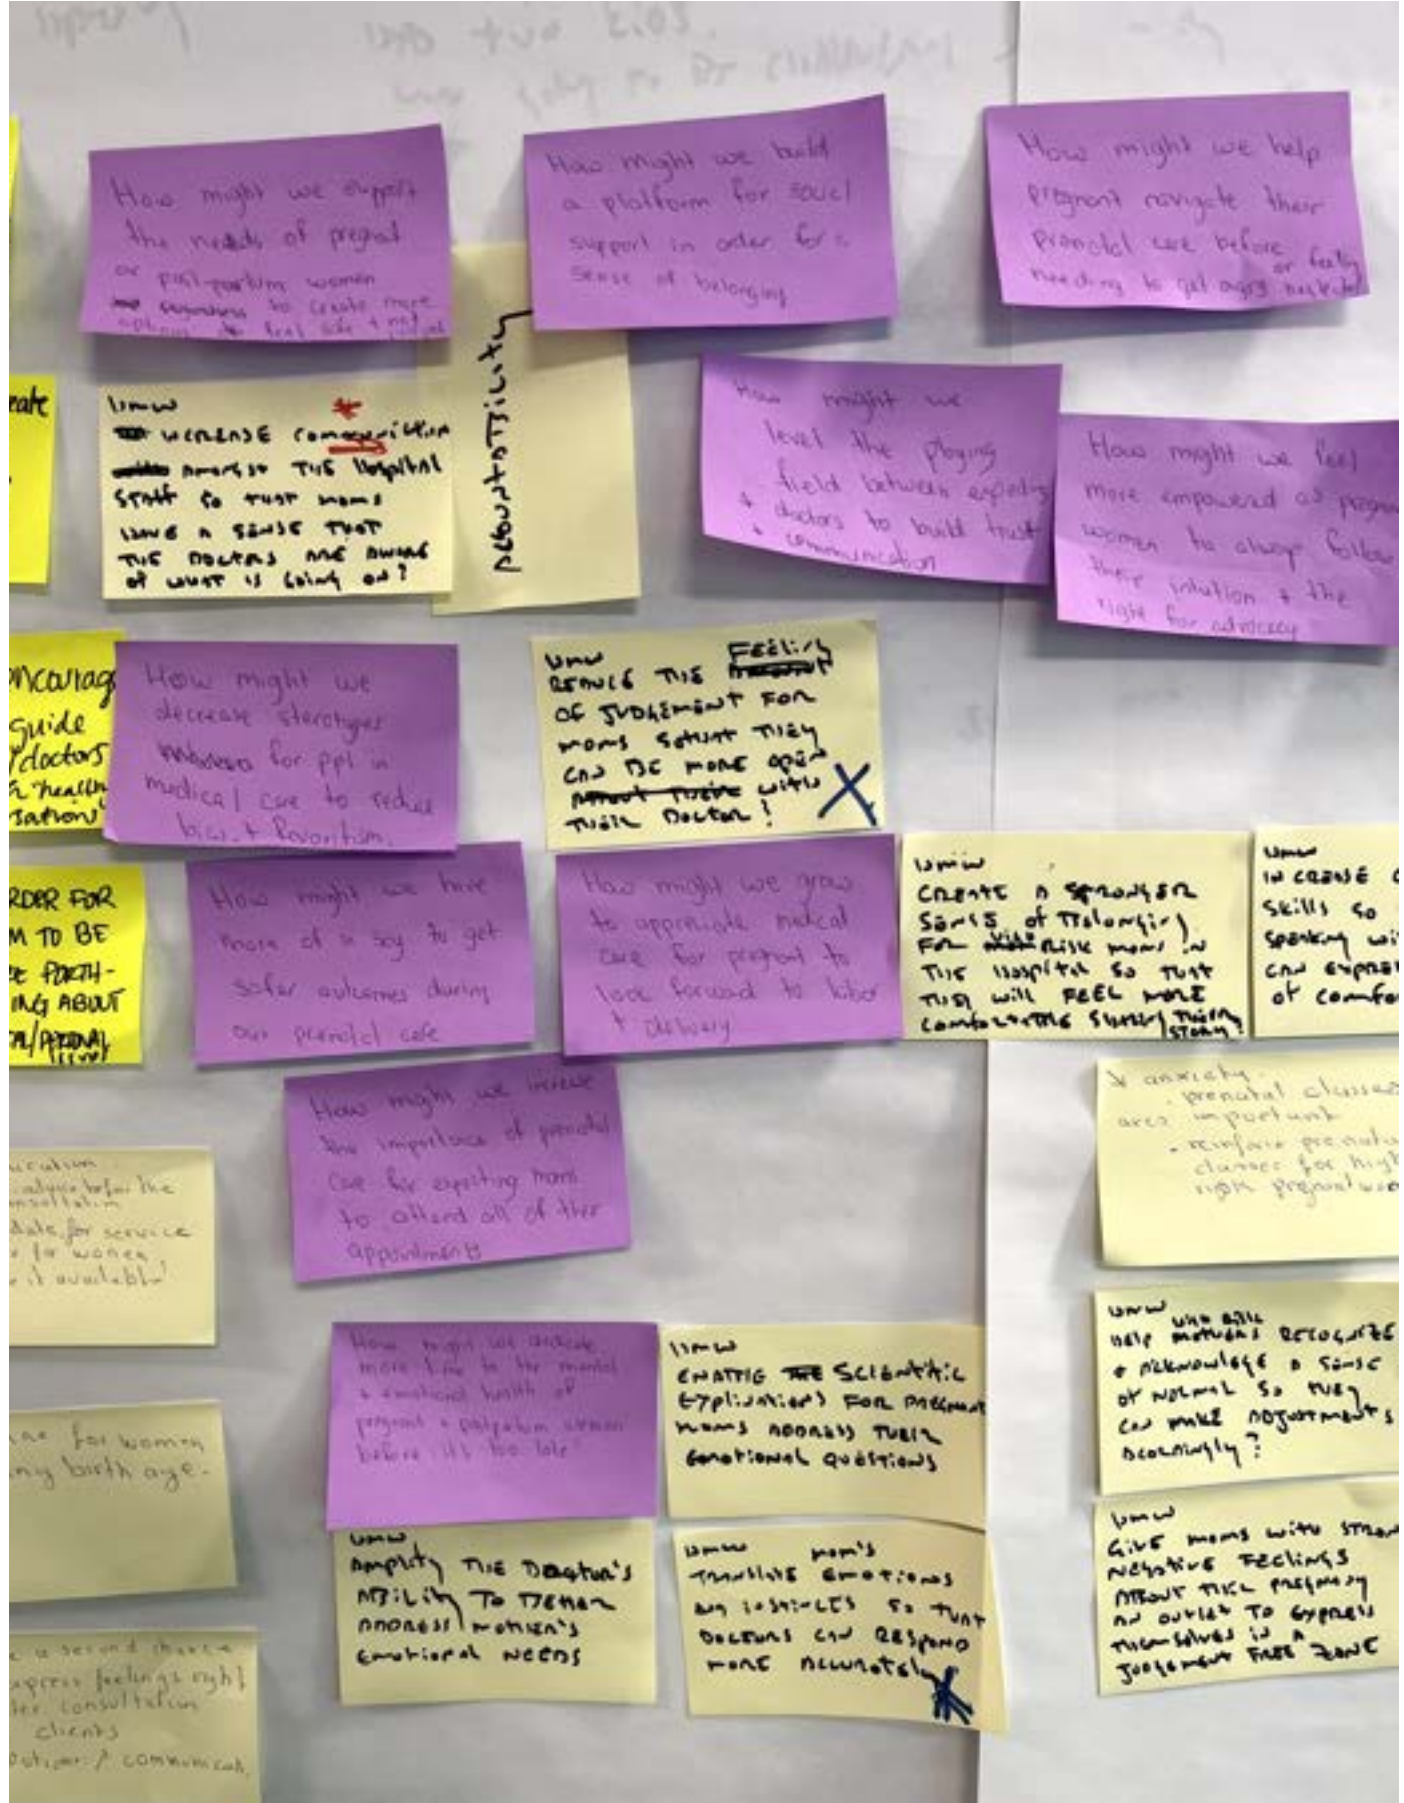 How might we support
the needs of pregnat
or post-partum women
to create more
options to feel safe + not
How might we build
a platform for soucl
support in order for a
sense of belonging
How might we help
pregnant navigate their
prenatal care before
needing to get angry or feeling neglected
eate
HMW
INCREASE COMMUNICATION
AMONGST THE HOSPITAL
STAFF SO THAT MOMS
HAVE A SENSE THAT
THE DOCTORS ARE AWARE
OF WHAT IS GOING ON?
ACCOUNTABILITY
How might we
level the playing
field between expecting
+ doctors to build trust
+ communication
How might we feel
more empowered as pregnan
women to always follow
their intution + the
right for advocacy
ncourag
guide
doctors
healin
sations
How might we
decrease sterotypes
for ppl in
medical care to reduce
bias + favoritism.
HMW
REDUCE THE FEELING
OF JUDGEMENT FOR
MOMS SOTHAT THEY
CAN BE MORE OPEN
WITH
THEIR DOCTOR!
RDER FOR
M TO BE
FORTH-
ING ABOUT
AL/PERSONAL
How might we have
more of a say to get
safer outcomes during
our prenatal care
How might we grow
to appreciate medical
care for pregnat to
look forward to labor
+ delivery
HMW
CREATE A STRONGER
SENSE OF BELONGING
FOR HIGH RISK MOMS IN
THE HOSPITAL SO THAT
THEY WILL FEEL MORE
COMFORTABLE SHARING THEIR
STORY?
HMW
INCREASE C
SKILLS SO
SPEAKING WI
CAN EXPRE
OF COMFO
How might we increase
the importance of prenatal
care for expecting moms
to attend all of their
appointments
anxiety.
. prenatal classes
are important
- reinforce prenata
classes for high
risk pregnat wo
ucation
advice before the
onsultation
date for service
for women
it available!
How might we dedicate
more time to the mental
+ emotional health of
pregnat + postpartum women
before it's too late
HMW
ENABLE SCIENTIFIC
EXPLINATIONS FOR PREGNANT
MOMS ADDRESS THEIR
EMOTIONAL QUESTIONS
HMW
HELP MOTHERS RECOGNIZE
+ ACKNOWLEGE A SENSE
OF NORMAL SO THEY
CAN MAKE ADJUSTMENTS
ACCORDINGLY?
for women
ng birth age.
HMW
AMPLIFY THE DOCTOR'S
ABILITY TO BETTER
ADDRESS MOTHER'S
EMOTIONAL NEEDS
HMW MOM'S
TRANSLATE EMOTIONS
INSTINCTS SO THAT
DOCTORS CAN RESPOND
MORE ACCURATELY
HMW
GIVE MOMS WITH STRON
NEGATIVE FEELINGS
ABOUT THEIR PREGNANCY
AN OUTLET TO EXPRESS
THEMSELVES IN A
JUDGEMENT FREE ZONE
a second chance
xpress feelings right
ter consultation
clients
communicat